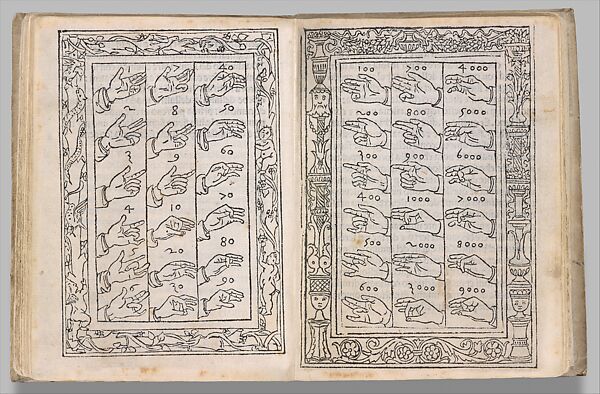 1 7 40
2 8 50
3 9 60
4 10 70
5 20 80
6 30 90
100 700 4000
200 800 5000
300 900 6000
400 1000 7000
500 2000 8000
600 3000 9000